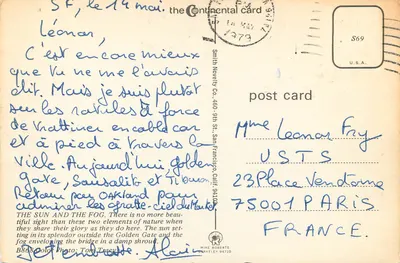 SF, le 14 mai.
the continental card
Léonar,
C'est encore mieux
que tu ne me l'avais
dit. Mais je suis plutôt
sur les rotules à force
de trottiner en cable car
et à pied à travers la
ville. Aujourd'hui golden
gate, Sausalito et Tiburon
Retour par Oakland pour
admirer les gratte-ciel du
THE SUN AND THE FOG. There is no more beau-
tiful sight than these two elements of nature when
they share their glory as they do here. The sun set-
ting in its splendor outside the Golden Gate and the
fog enveloping the bridge in a damp shroud.
Je t'embrasse. Alain
Smith Novelty Co., 460 9th St., San Francisco, Calif. 94103
1979
S69
U.S.A.
post card
Mme Léonar Fry
USTS
23 Place Vendome
75001 PARIS
FRANCE.
MIKE ROBERTS